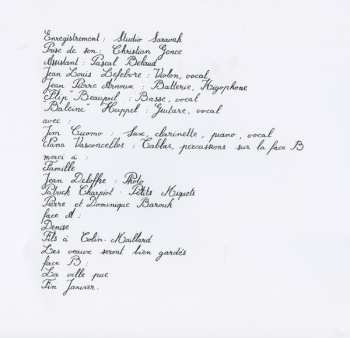 Enregistrement : Studio Saravah
Prise de son : Christian Gence
Assistant : Pascal Bélaud
Jean Louis Lefebvre : Violon, vocal
Jean Pierre Arnoux : Batterie, Hygophone
"Elip" Beaupoil : Basse, vocal
"Baleine" Huppel : Guitare, vocal
avec :
Jim Cuomo : Sax, clarinette, piano, vocal
Nana Vasconcellos : Tablas, percussions sur la face B
merci à :
Famille
Jean Deloffre : Photo
Patrick Charpiot : Petits Miquets
Pierre et Dominique Barouh
face A :
Denise
Fils à Colin-Maillard
Les veuve seront bien gardés
face B :
La ville pue
Fin Janvier.